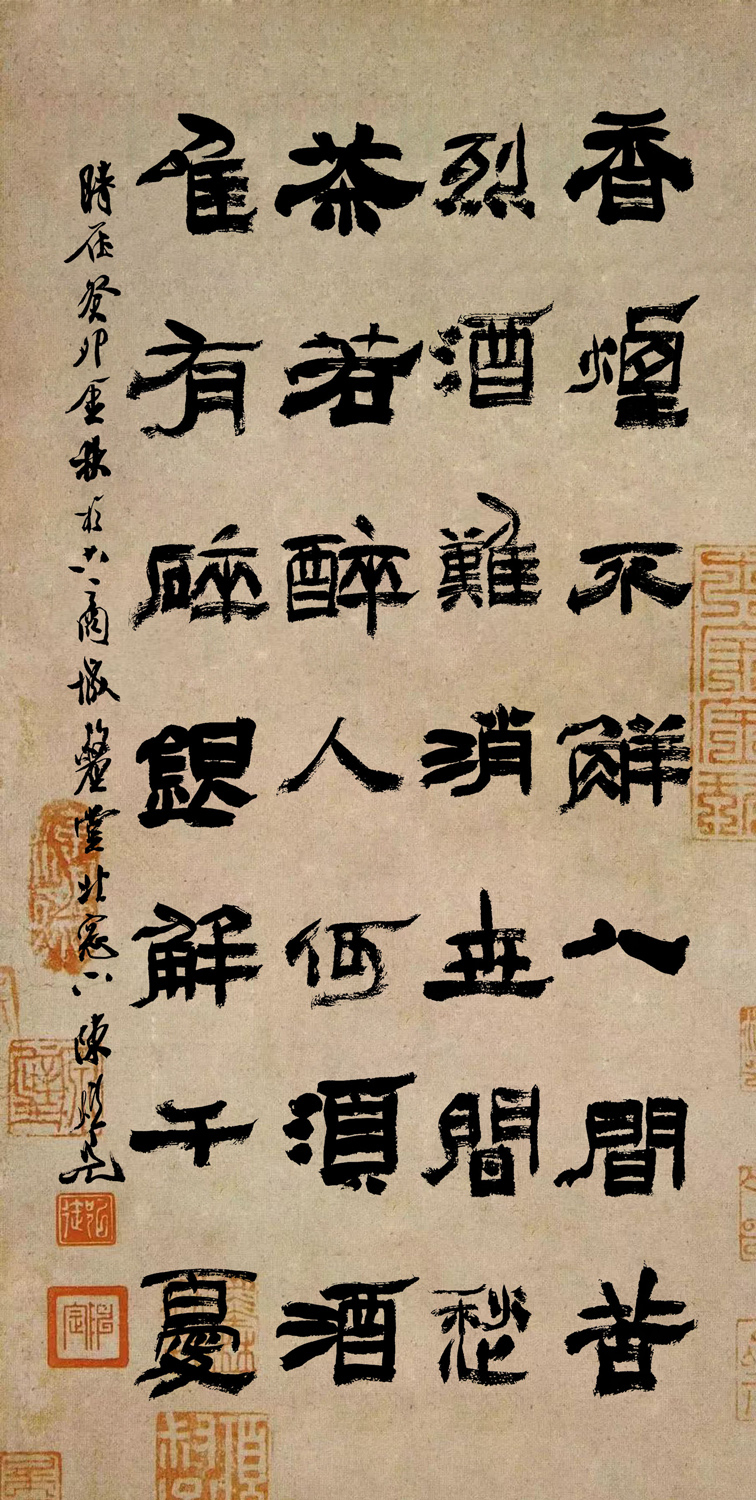 香煙不解人間苦
烈酒難消世間愁
茶若醉人何須酒
隹有碎銀解千憂
時在癸卯金秋於商城堂北窗下陳